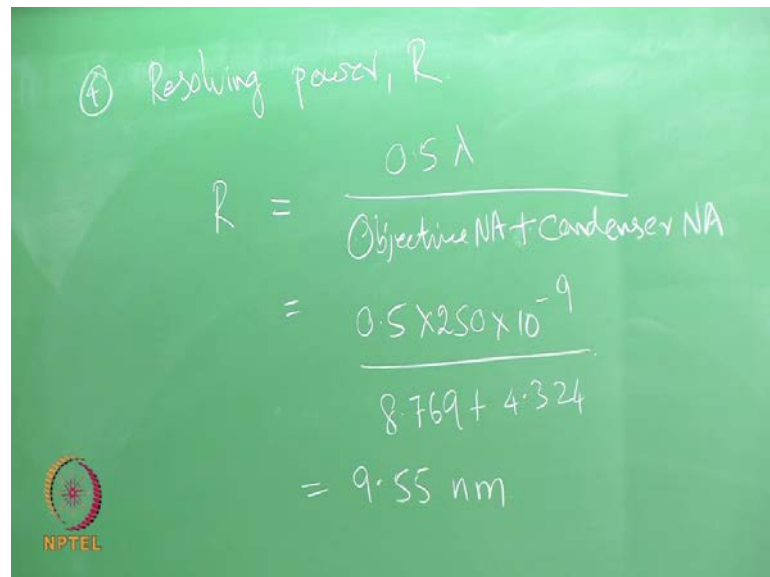 ④ Resolving power, R.
R = 0.5 λ
Objective NA + Condenser NA
= 0.5 X 250 X 10⁻⁹
8.769 + 4.324
= 9.55 nm
NPTEL